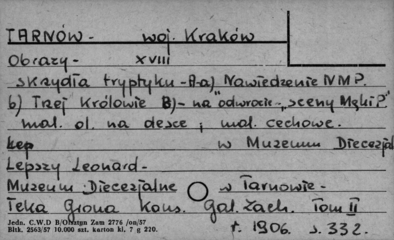 TARNÓW - woj. Kraków
Obrazy - XVIII
skrzydła tryptyku - A-a) „Nawiedzenie NMP.
b) Trzej Królowie B) - na "odwrocie - „sceny Męki P."
mal. ol. na desce, mal. cechowe.
Łep w Muzeum Diecezjal
Lepszy Leonard -
Muzeum Diecezjalne w Tarnowie -
Teka Grona Kons. Gal. Zach. Tom II
r. 1906. s. 332.
Jedn. C.W.D B/Olsztyn Zam 2776 /on/57
Bltk. 2563/57 10.000 szt. karton kl. 7 g 220.